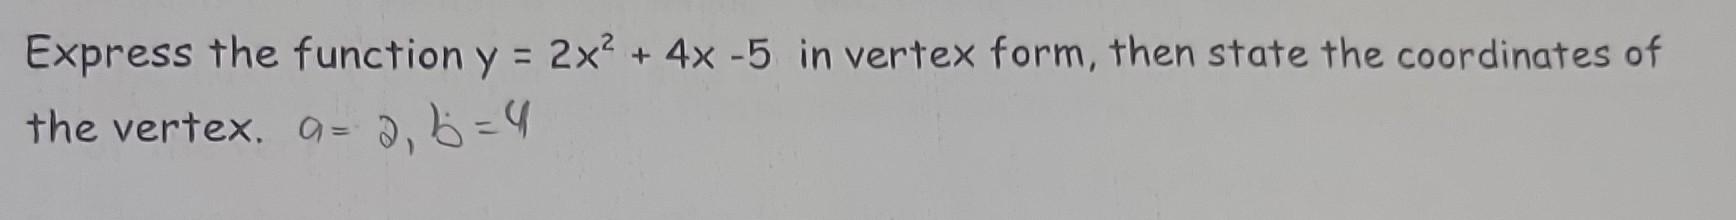 Express the function y = 2x² + 4x -5 in vertex form, then state the coordinates of
the vertex. a= 2, b=4